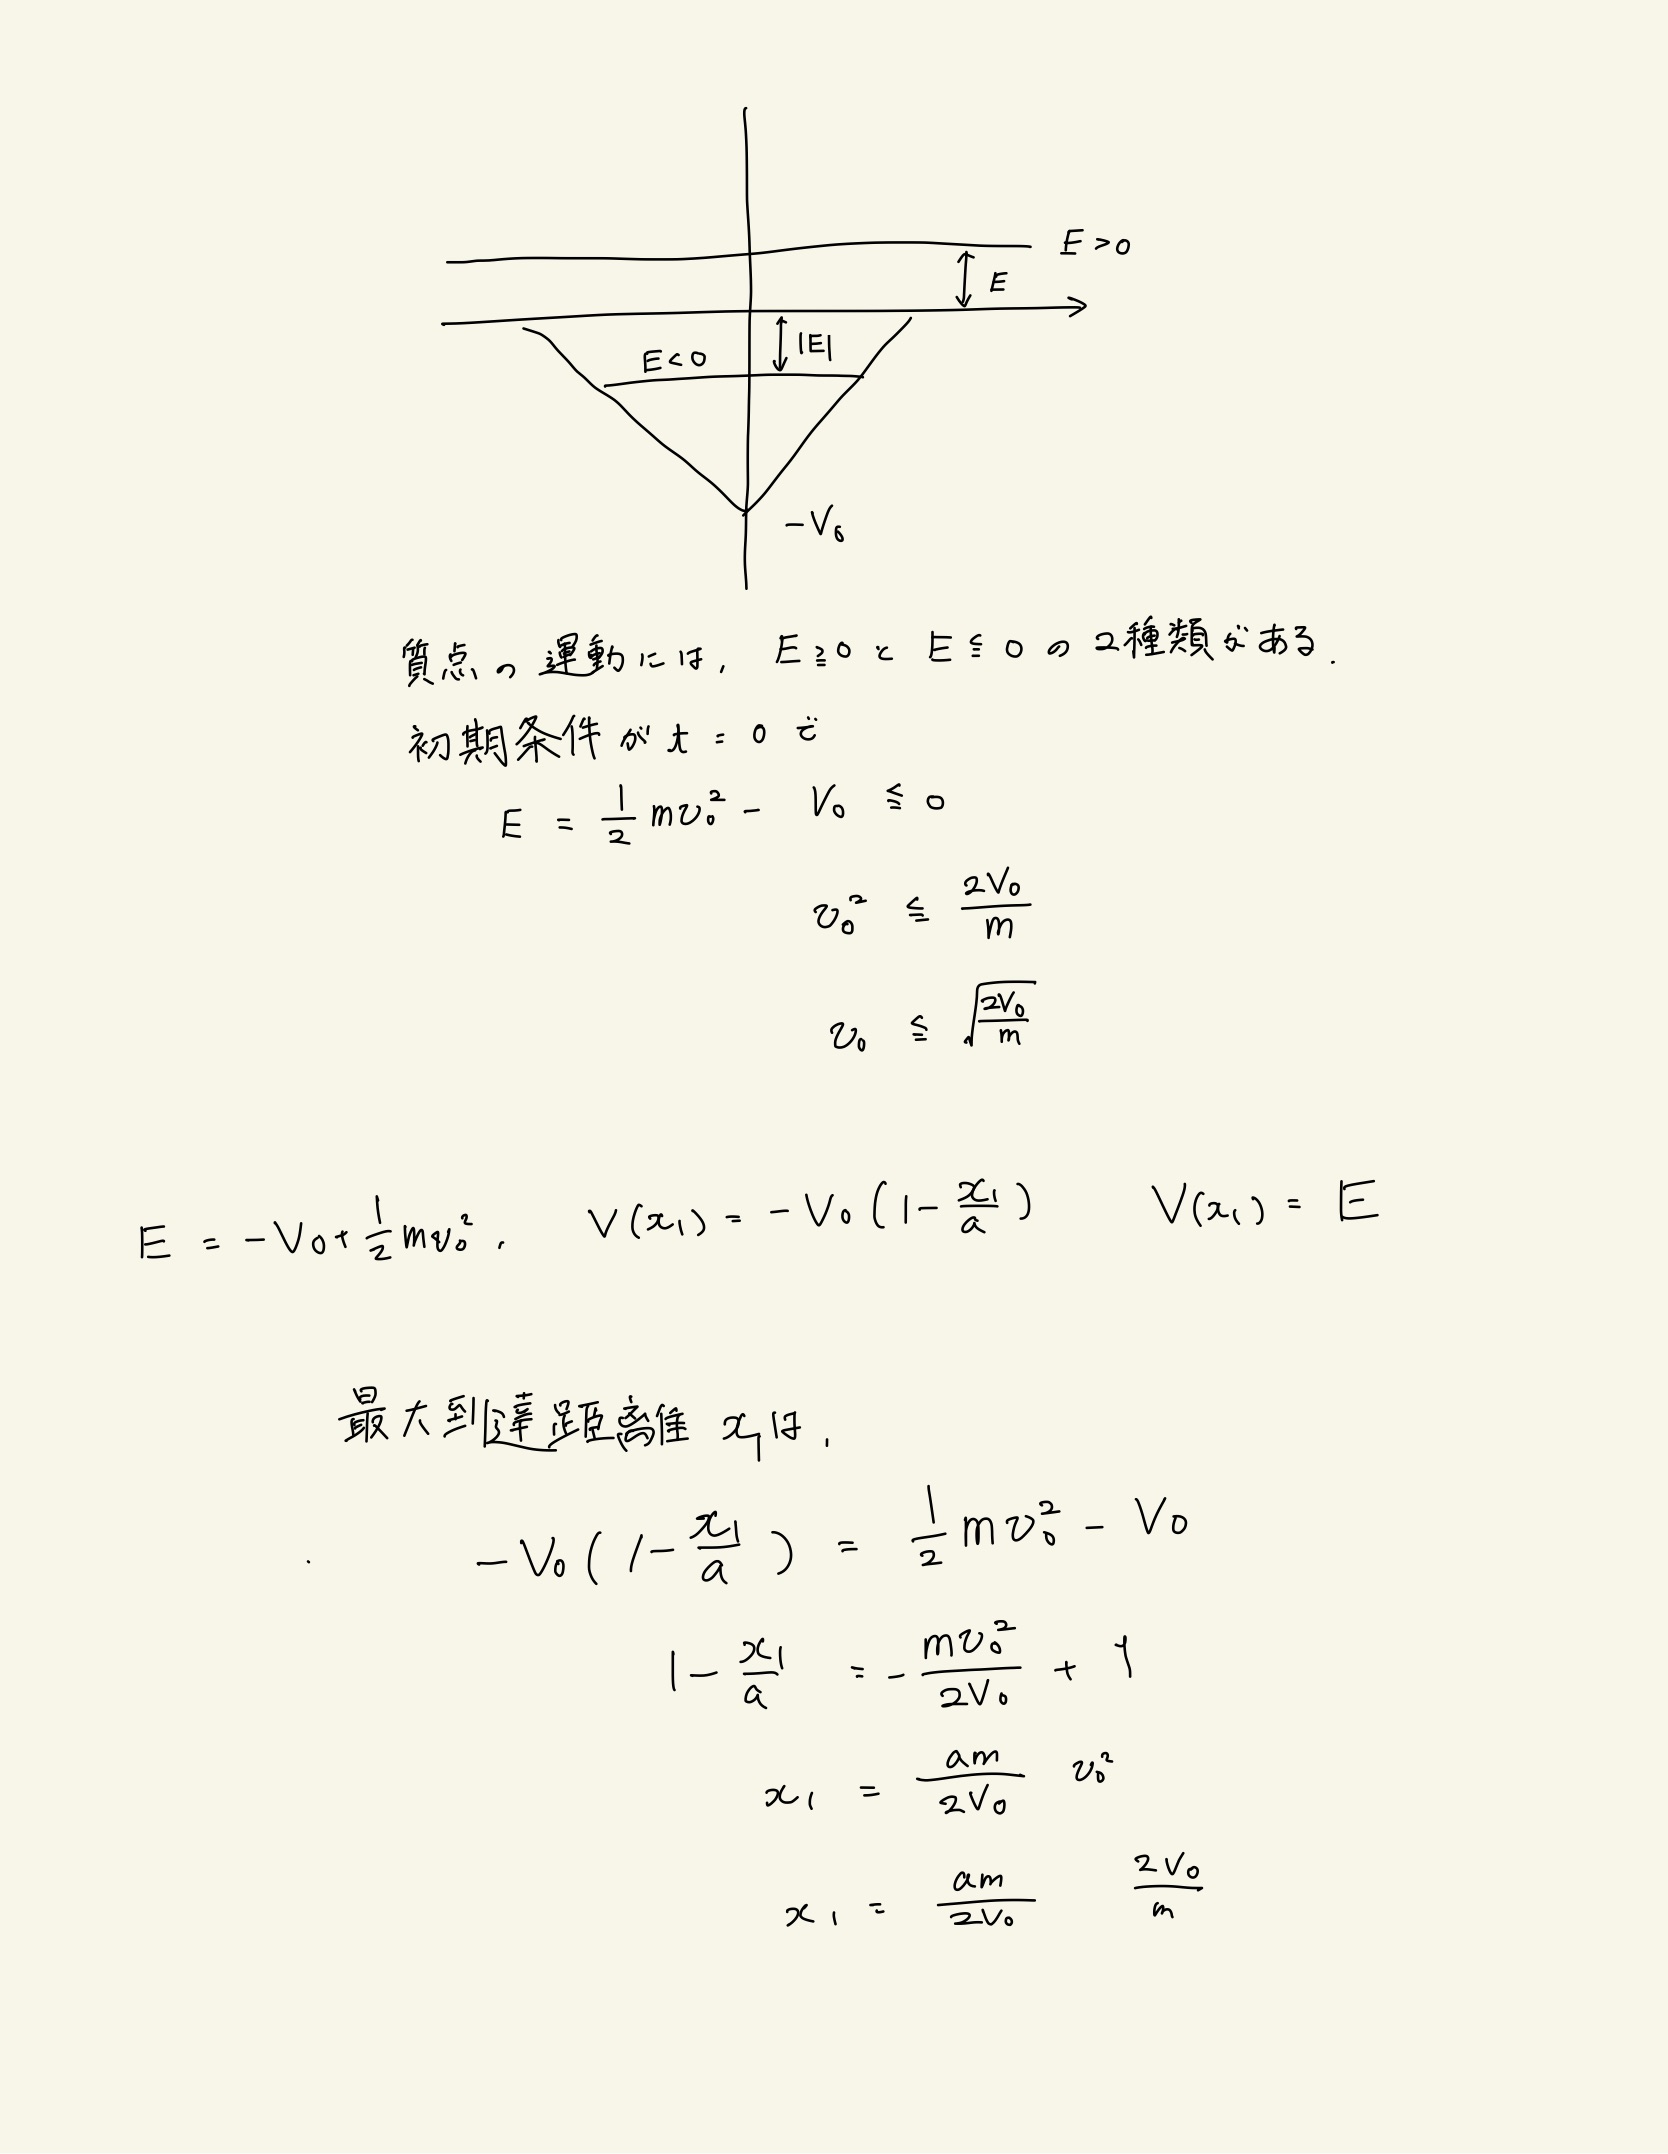 E > 0
E
|E|
E < 0
-V₀
質点の運動には, E ≧ 0 と E ≦ 0 の 2種類がある.
初期条件が t = 0 で
E = 1/2 mv₀² - V₀ ≦ 0
v₀² ≦ 2V₀/m
v₀ ≦ √(2V₀/m)
E = -V₀ + 1/2 mv₀², V(x₁) = -V₀(1 - x₁/a) V(x₁) = E
最大到達距離 x₁は,
-V₀(1 - x₁/a) = 1/2 mv₀² - V₀
1 - x₁/a = - mv₀²/2V₀ + 1
x₁ = am/2V₀ v₀²
x₁ = am/2V₀ 2V₀/m